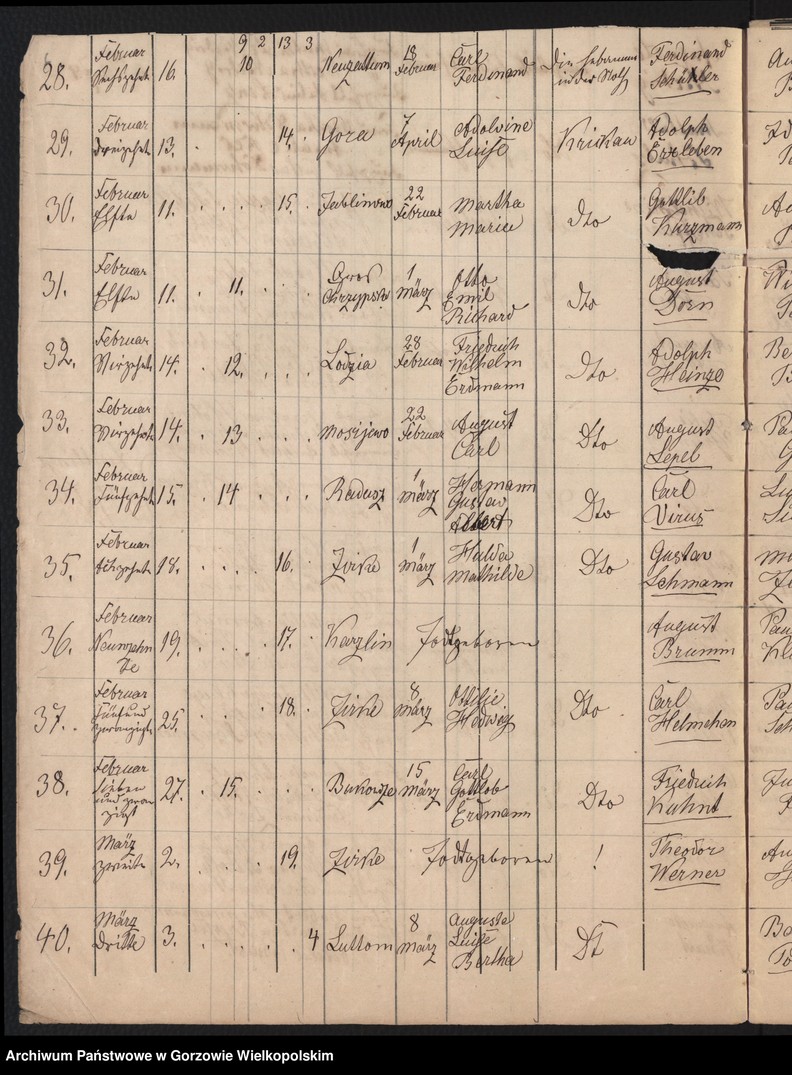 9 2 13 3
28. Februar 16. 10. 18 Carl Ferdinand
Sechszehnte Februar Ferdinand Die Hebamme
29. Februar 13. 14. Gora 7 Adolvine Krickau Adolph
Dreizehnte April Luise Erxleben
30. Februar 11. 15. 22 Martha dto Gottlib
Elfte Februar Marie Kurzmann
31. Februar 11. 11. Gros 1 Otto dto August
Elfte Chrzypsko März Emil Dorn
Richard
32. Februar 14. 12. Lodzia 28 Friedrich dto Adolph
Vierzehnte Februar Wilhelm Heinze
Erdmann
33. Februar 14. 13 Mosijewo 22 August Dto August
Vierzehnte Februar Carl Lepel
34. Februar 15. 14 Radusz 1 Hermann Dto Carl
Fünfzehnte März Gustav
Albert
35. Februar 18. 16. Zirke 1 Hulda Dto Gustav
Achzehnte März Mathilde Lehmann
36. Februar 19. 17. Karzlin Todtgeboren August
Neunzehn Brumm
te
37. Februar 25. 18. Zirke 8 Ottilie Dto Carl
Fünfund März Hedwig Helmchen
zwanzigste
38. Februar 27. 15. 15 Carl Dto Friedrich
Sieben März Gottlob Kuhnt
und zwan Erdmann
zigst
39. März 2. 19. Zirke Todtgeboren ! Theodor
zweite Werner
40. März 3. 4 Luttom 8 Auguste Dt
Dritte März Luise
Bertha
Archiwum Państwowe w Gorzowie Wielkopolskim